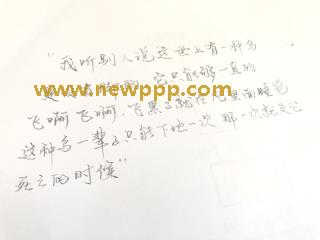 “我听别人说这世上有一种鸟
是没有脚的，它只能够一直的
www.newppp.com
飞啊飞啊，飞累了就在风里面睡觉
这种鸟一辈子只能下地一次 那一次就是它
死亡的时候”